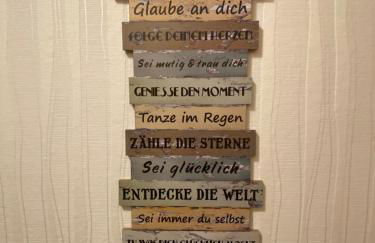 Glaube an dich
FOLGE DEINEM HERZEN
Sei mutig & trau dich
GENIESSE DEN MOMENT
Tanze im Regen
ZÄHLE DIE STERNE
Sei glücklich
ENTDECKE DIE WELT
Sei immer du selbst